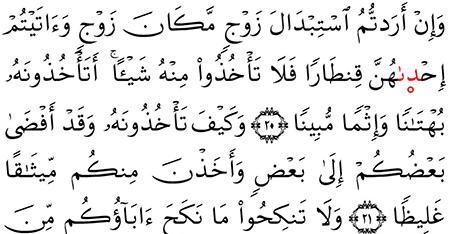 وَإِنْ أَرَدتُّمُ ٱسْتِبْدَالَ زَوْجٍ مَّكَانَ زَوْجٍ وَءَاتَيْتُمْ
إِحْدَىٰهُنَّ قِنطَارًا فَلَا تَأْخُذُوا۟ مِنْهُ شَيْـًٔا ۚ أَتَأْخُذُونَهُۥ
بُهْتَـٰنًا وَإِثْمًا مُّبِينًا ٢٠ وَكَيْفَ تَأْخُذُونَهُۥ وَقَدْ أَفْضَىٰ
بَعْضُكُمْ إِلَىٰ بَعْضٍ وَأَخَذْنَ مِنكُم مِّيثَـٰقًا
غَلِيظًا ٢١ وَلَا تَنكِحُوا۟ مَا نَكَحَ ءَابَآؤُكُم مِّنَ